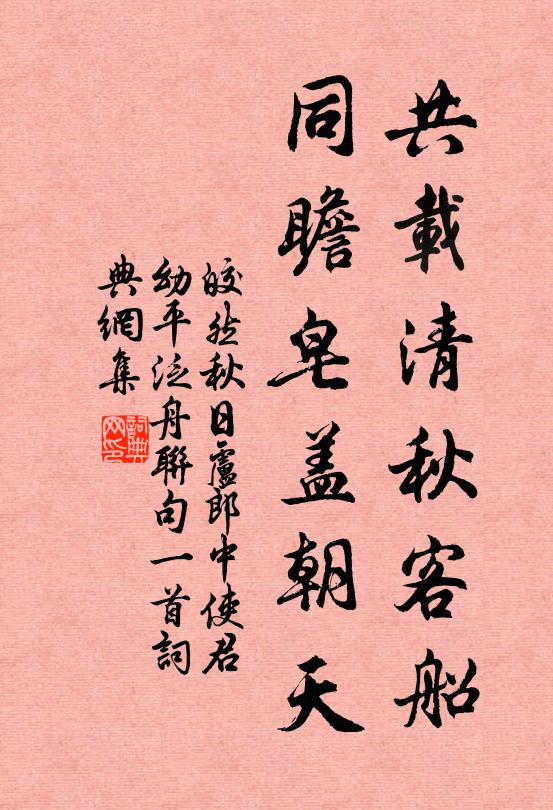 共載清秋客船
同瞻皂盖朝天
皎然秋日盧郎中使君
幼平泛舟聯句一首詞
典網集
詞典
网印